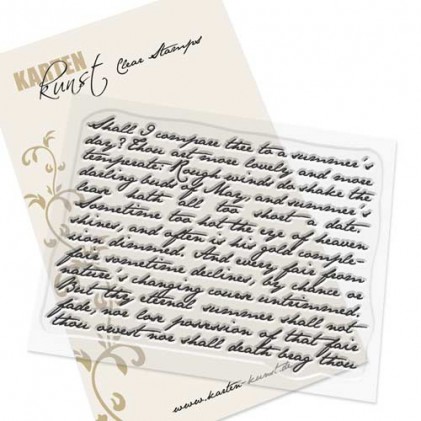 KARTEN
Kunst Clear Stamps
Shall I compare thee to a summer's
day? Thou art more lovely and more
temperate: Rough winds do shake the
darling buds of May, and summer's
lease hath all too short a date,
Sometime too hot the eye of heaven
shines, and often is his gold comple-
xion dimmed, And every fair from
fair sometime declines, by chance or
nature's changing course untrimmed,
But thy eternal summer shall not
fade, nor lose possession of that fair
thou owest nor shall death brag thou
www.karten-kunst.de